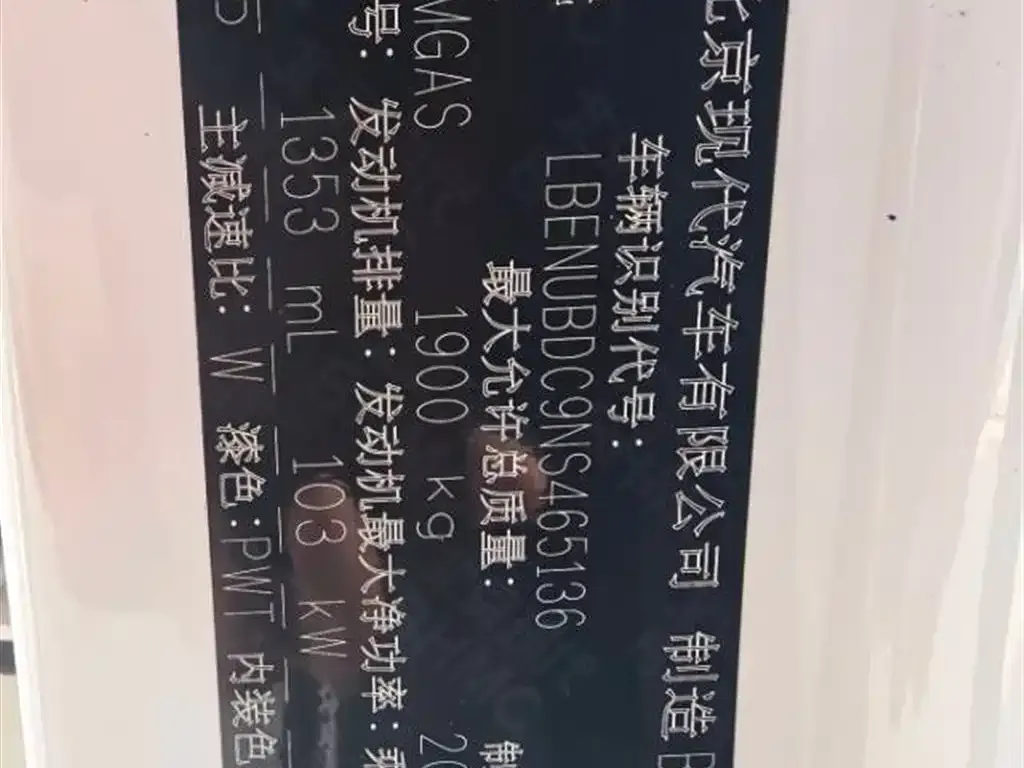 北京现代汽车有限公司 制造
车辆识别代号:
LBENUBDC9NS465136
最大允许总质量: 制
MGAS 1900 kg 20
号: 发动机排量: 发动机最大净功率: 乘
1353 mL 103 kW
主减速比: W 漆色:PWT 内装色